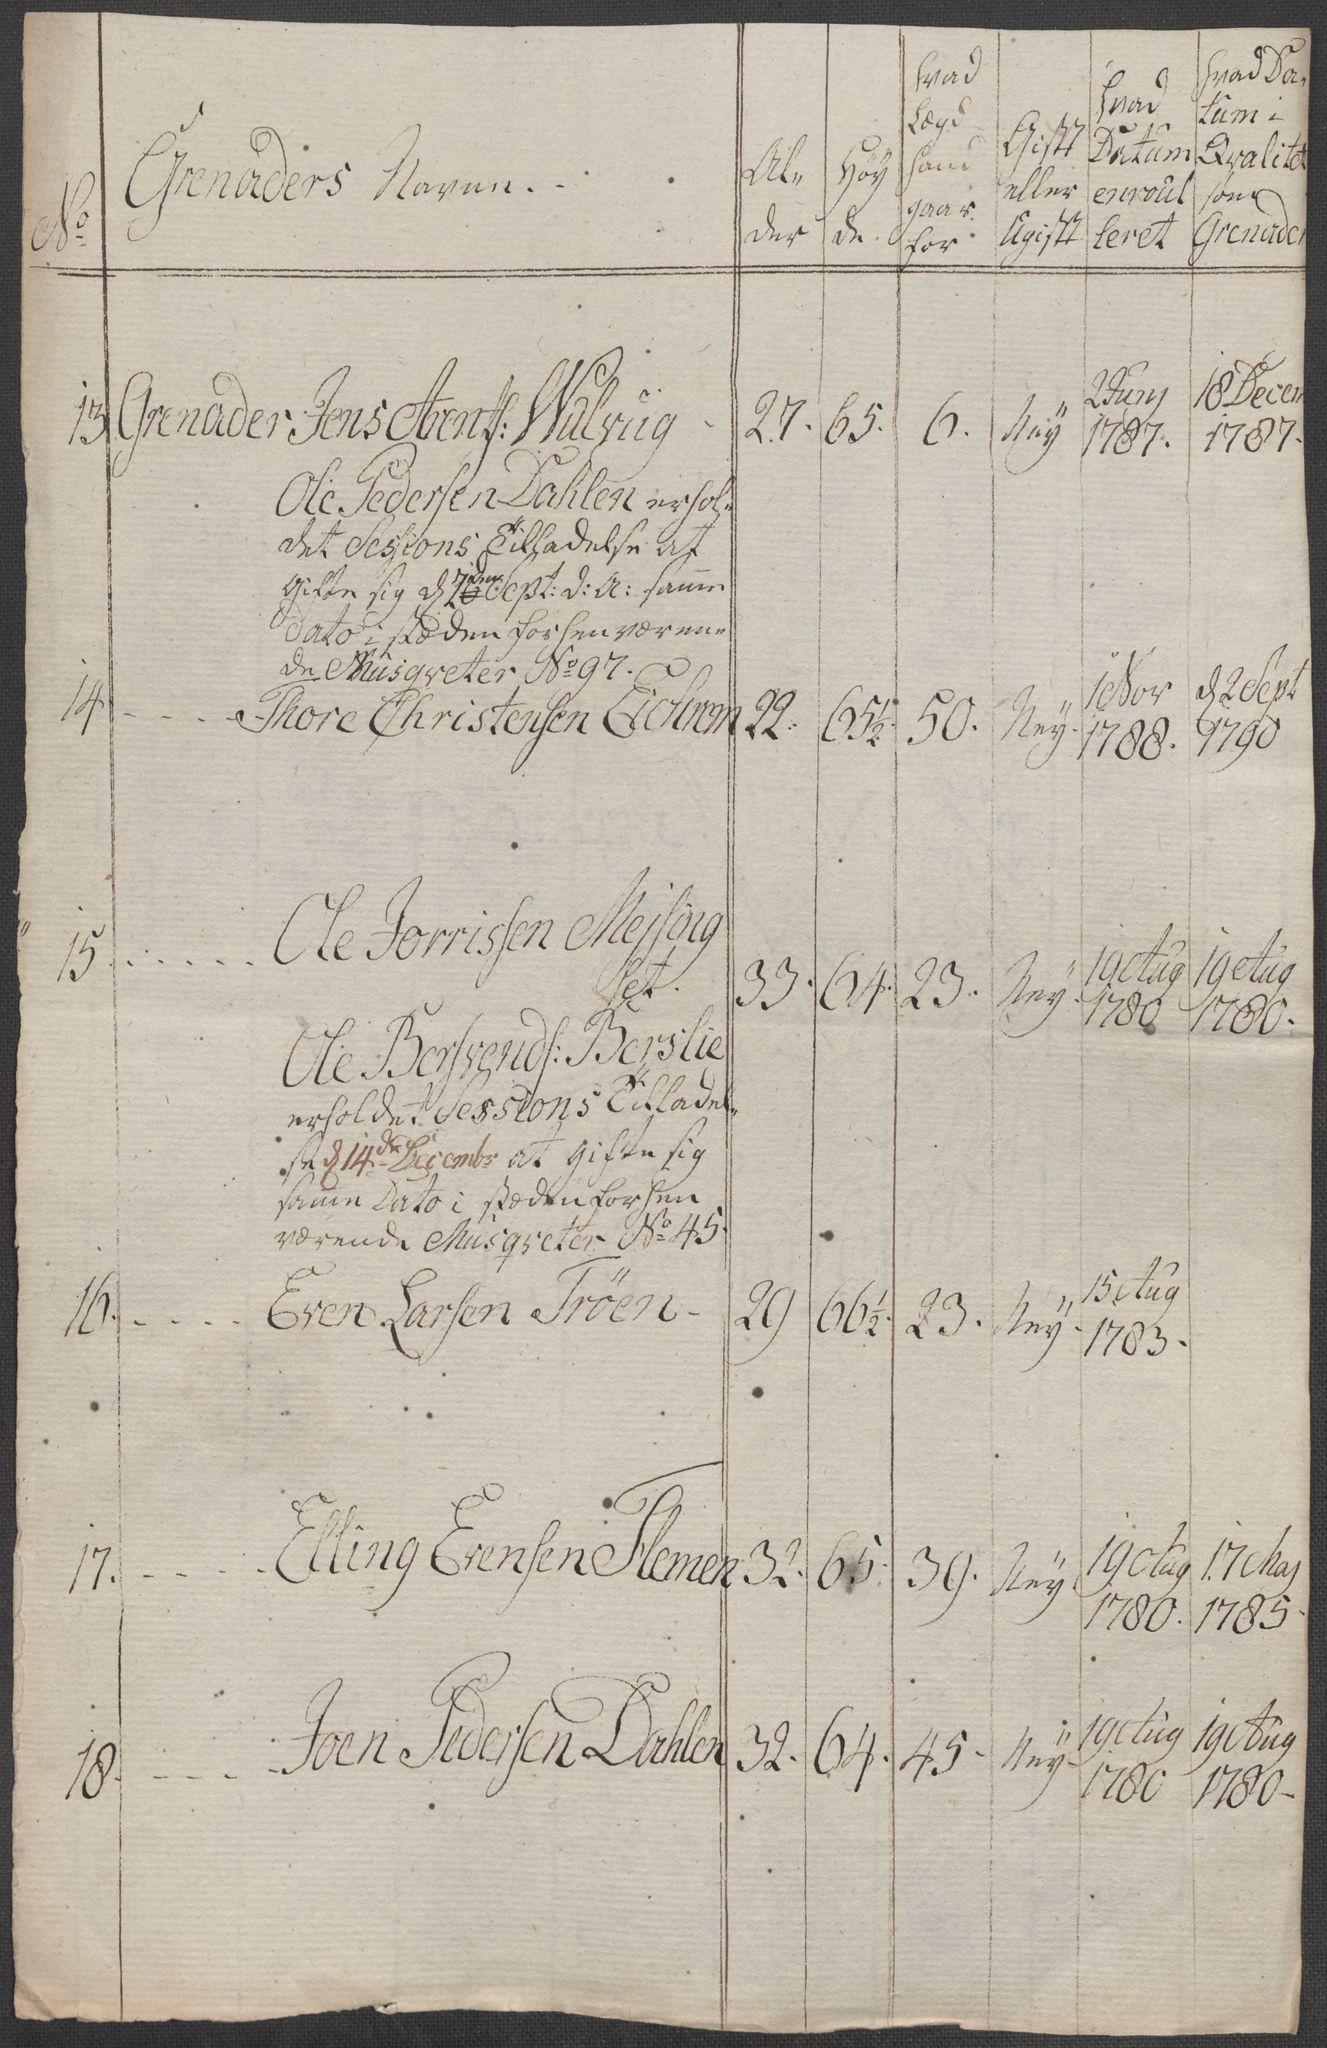 No
Grenaders Navne.
Al-
der
Høy
de.
hvad
Lægd
hand
gaar
for
Gift
eller
Ugift
hvad
Datum
enroul
leret
hvad Da-
tum i
Qvalitet
som
Grenader
13 Grenader Jens Arentz: Wulvug 27. 65. 6. Ney 2 Junj 1787. 18 Decem 1787.
Ole Pedersen Dahlen erhol-
det Sessions Tilladelse at
gifte sig d Sept: d: A: samme
Dato i stæden forhen væren-
de Musqveter No 97.
14 - - - - Thore Christensen 22. 65½ 50. Ney 1 Nov 1788. d 2 Sept 1790
15 . . . . . Ole Jorrissen Mejsing
set. 33. 64. 23. Ney 19 Aug 1780 19 Aug 1780.
Ole Bersvends: Berslie
erholdet Sessions Tilladel-
se d 14de Decembr at gifte sig
samme Dato i stæden forhen
værende Musqveter No 45.
16. - - - - Even Larsen Tröen - 29 66½ 23. Ney 15 Aug 1783.
17. - - - - Elling Evensen Flemen 32. 65. 39. Ney 19 Aug 1780. 17 Maj 1785
18. - - - - Joen Pedersen Dahlen 32. 64. 45 - Ney 19 Aug 1780 19 Aug 1780 -